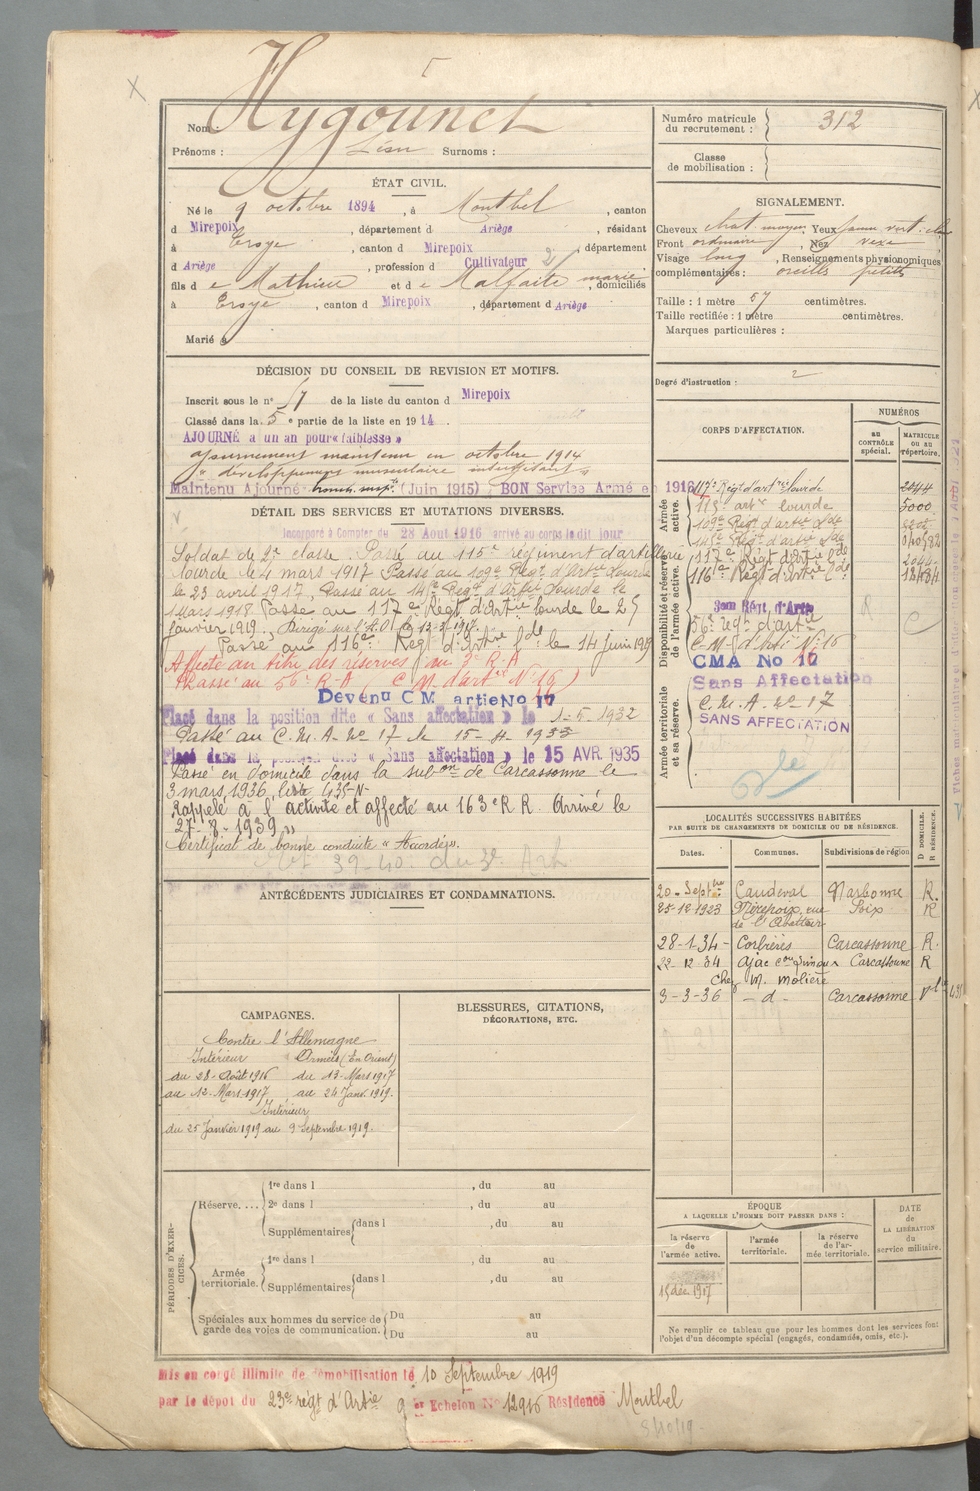 Nom : Hygounet
Prénoms : Léon Surnoms :
ÉTAT CIVIL.
Né le 9 octobre 1894, à Montbel, canton
d Mirepoix, département d Ariège, résidant
à Troye, canton d Mirepoix, département
d Ariège, profession d Cultivateur 2
fils d e Mathieu et d e Malfaite marie, domiciliés
à Troye, canton d Mirepoix, département d Ariège
Marié à
DÉCISION DU CONSEIL DE REVISION ET MOTIFS.
Inscrit sous le n° 57 de la liste du canton d Mirepoix
Classé dans la 5 e partie de la liste en 1914.
AJOURNÉ a un an pour « faiblesse »
ajournement maintenu en octobre 1914
"développement musculaire insuffisant"
Maintenu Ajourné (Juin 1915) BON Service Armé en 1916
DÉTAIL DES SERVICES ET MUTATIONS DIVERSES.
Incorporé à Compter du 28 Aout 1916 arrivé au corps le dit jour
Soldat de 2e classe. Passé au 115e régiment d'artillerie
lourde le 4 mars 1917 Passé au 109e Régt d'Artie Lourde
le 23 avril 1917, Passé au 145e Régt d'Artie Lourde le
1 mars 1918 Passé au 117e Régt d'Artie lourde le 25
janvier 1919, Dirigé sur l'A.O. le 13-3-1917
Passé au 116e Régt d'Artre Lde le 14 juin 1919
Affecté au titre des réserves au 3e R.A
Passé au 56e R.A (C.M. d'artie No 16)
Devenu C M artie No 17
Placé dans la position dite « Sans affectation » le 1-5-1932
Passé au C.M.A. No 17 le 15-4-1933
Placé dans la position dite « Sans affectation » le 15 AVR 1935
Passé en domicile dans la subon de Carcassonne le
3 mars 1936, liste 435-N-
Rappelé à l'activité et affecté au 163e R R. Arrivé le
27-8-1939 "
Certificat de bonne conduite « Accordé ».
39-40
ANTÉCÉDENTS JUDICIAIRES ET CONDAMNATIONS.
CAMPAGNES.
Contre l'Allemagne
Intérieur Armées (En Orient)
du 28-Août 1916 du 13-Mars 1917
au 12-Mars 1917 au 24 Janv. 1919.
Intérieur
du 25 Janvier 1919 au 9 Septembre 1919.
BLESSURES, CITATIONS,
DÉCORATIONS, ETC.
PÉRIODES D'EXERCICES.
Réserve....
1re dans l , du au
2e dans l , du au
Supplémentaires dans l , du au
Armée territoriale.
1re dans l , du au
Supplémentaires dans l , du au
Spéciales aux hommes du service de Du au
garde des voies de communication. Du au
Mis en congé illimité de démobilisation le 10 Septembre 1919
par le dépôt du 23e régt d'Artie 9 er Echelon No 12916 Résidence Montbel
Numéro matricule
du recrutement : 312
Classe
de mobilisation :
SIGNALEMENT.
Cheveux chat moyen, Yeux jaune vert clair
Front ordinaire, Nez vexe
Visage long, Renseignements physionomiques
complémentaires : oreilles petites
Taille : 1 mètre 57 centimètres.
Taille rectifiée : 1 mètre centimètres.
Marques particulières :
Degré d'instruction : 2
CORPS D'AFFECTATION.
NUMÉROS
AU CONTRÔLE spécial.
MATRICULE ou au répertoire.
Armée active.
117e Régt d'artie lourde 2044
115e artie lourde 5000
109e Régt d'artie Lde
145e Régt d'artie Lde
Disponibilité et réserve de l'armée active.
117e Régt d'artie Lde 2044
116e Régt d'artie Lde
3em Régt. d'Artie
56e régt d'artie
C-M- d'Artie No 16
CMA No 17
Sans Affectation
Armée territoriale et sa réserve.
C.M.A. No 17
SANS AFFECTATION
LOCALITÉS SUCCESSIVES HABITÉES
PAR SUITE DE CHANGEMENTS DE DOMICILE OU DE RÉSIDENCE.
Dates. Communes. Subdivisions de région. D DOMICILE. R RÉSIDENCE.
20-Septbre Caudeval Narbonne R.
25-12-1923 Mirepoix, rue Foix R
de l'Abattoir
28-1-34- Corbières Carcassonne R.
22-12 34 Ajac Carcassonne R
chez M. Molière
3-3-36 - d - Carcassonne
ÉPOQUE
A LAQUELLE L'HOMME DOIT PASSER DANS :
la réserve de l'armée active.
l'armée territoriale.
la réserve de l'armée territoriale.
DATE de LA LIBÉRATION du service militaire.
15 déc. 1917
Ne remplir ce tableau que pour les hommes dont les services font
l'objet d'un décompte spécial (engagés, condamnés, omis, etc.).